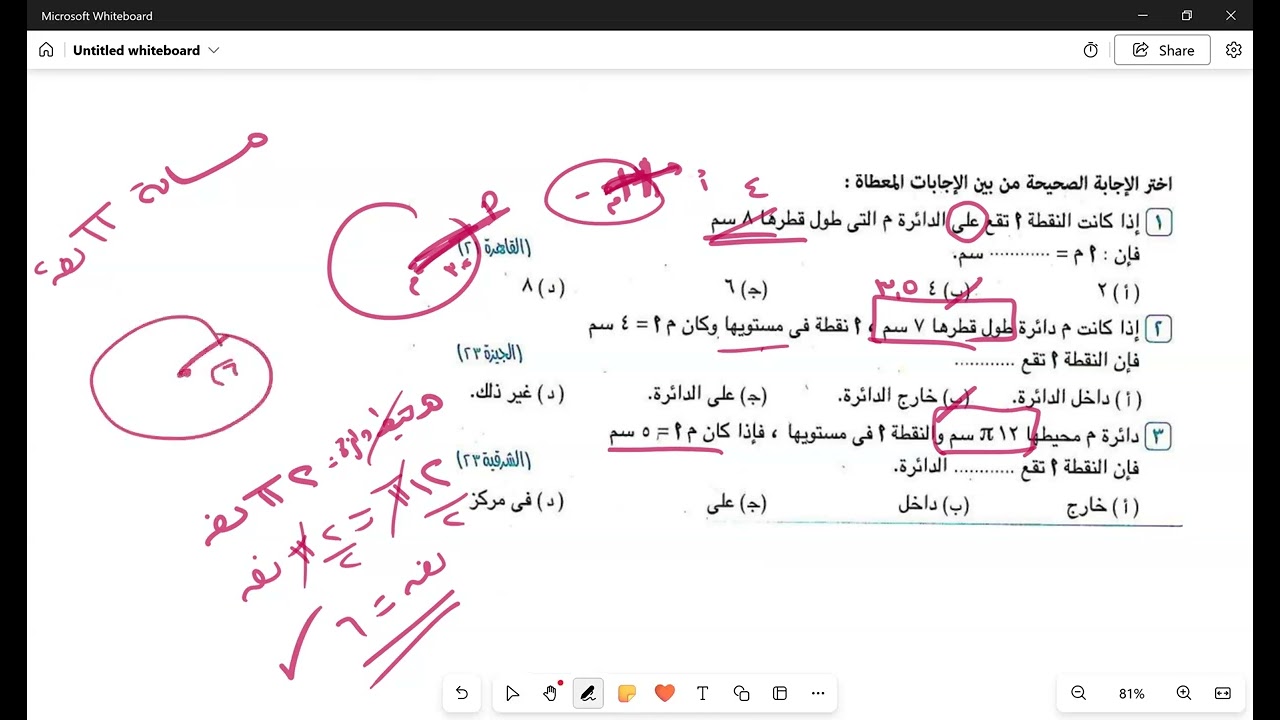 Microsoft Whiteboard
Untitled whiteboard
Share
اختر الإجابة الصحيحة من بين الإجابات المعطاة :
١ إذا كانت النقطة ٢ تقع على الدائرة م التى طول قطرها ٨ سم
٤
فإن : ٢ م = ............ سم.
(القاهرة ٢٣)
(أ) ٢ (ب) ٤ (جـ) ٦ (د) ٨
٣,٥
٢ إذا كانت م دائرة طول قطرها ٧ سم ، ٢ نقطة فى مستويها وكان م ٢ = ٤ سم
فإن النقطة ٢ تقع ............
(الجيزة ٢٣)
(أ) داخل الدائرة. (ب) خارج الدائرة. (جـ) على الدائرة. (د) غير ذلك.
٣ دائرة م محيطها ١٢ π سم والنقطة ٢ فى مستويها ، فإذا كان م ٢ = ٥ سم
فإن النقطة ٢ تقع ............ الدائرة.
(الشرقية ٢٣)
(أ) خارج (ب) داخل (جـ) على (د) فى مركز
مساحة π نق٢
محيط الدائرة = ٢ π نق
١٢ π = ٢ π نق
٢ ٢
نق = ٦
81%